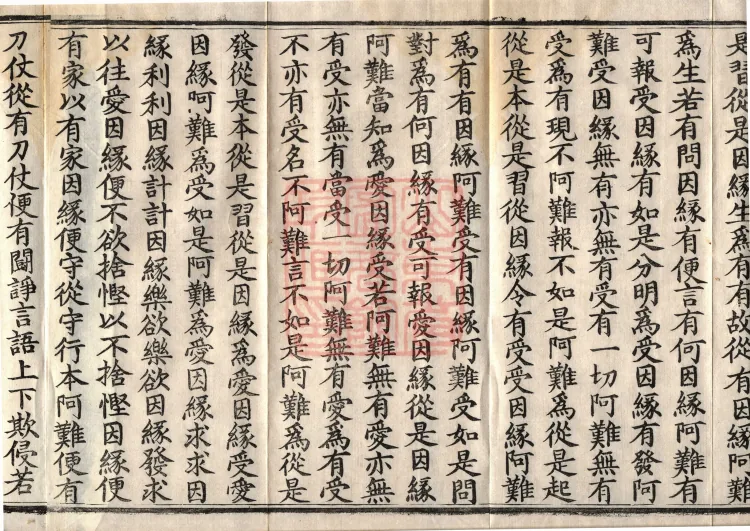 是習從是因緣生爲有有故從有因緣
爲生若有問因緣有便言有何因緣阿難有
可報受因緣有如是分明爲受因緣有發阿
難受因緣無有亦無有受有一切阿難無有
受爲有現不阿難報不如是阿難爲從是起
從是本從是習從因緣令有受受因緣阿難
爲有有因緣阿難受有因緣阿難受如是問
對爲有何因緣有受可報愛因緣從是因緣
阿難當知爲愛因緣受若阿難無有愛亦無
有受亦無有當受一切阿難無有愛爲有受
不亦有受名不阿難言不如是阿難爲從是
發從是本從是習從是因緣爲愛因緣受愛
因緣阿難爲受如是阿難爲愛因緣求求因
緣利利因緣計計因緣樂欲樂欲因緣發求
以往愛因緣便不欲捨慳以不捨慳因緣便
有家以有家因緣便守從守行本阿難便有
刀仗從有刀仗便有鬪諍言語上下欺侵若